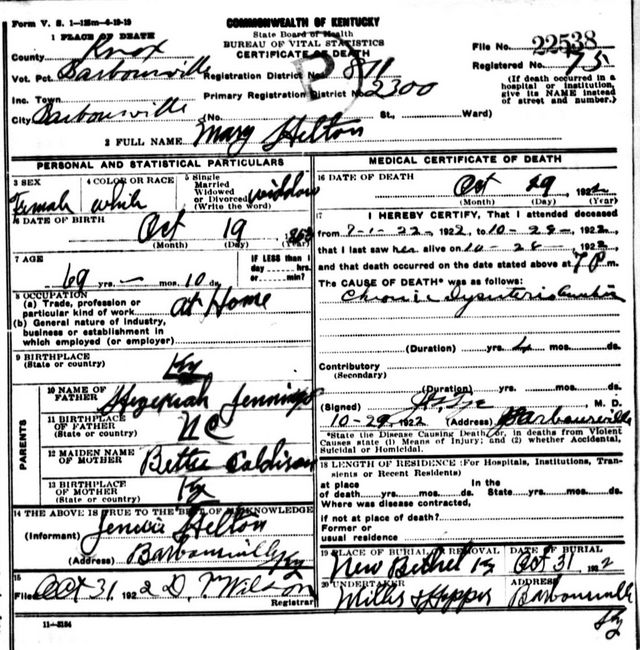 Form V. S. 1—15m—6-19-19
COMMONWEALTH OF KENTUCKY
State Board of Health
BUREAU OF VITAL STATISTICS
CERTIFICATE OF DEATH
File No. 22538
Registered No. 75
(If death occurred in a hospital or institution, give its NAME instead of street and number.)
1 PLACE OF DEATH
County Knox
Vot. Pct. Barbourville Registration District No. 811
Inc. Town Primary Registration District No. 2300
City Barbourville (No. St., Ward)
2 FULL NAME Mary Helton
PERSONAL AND STATISTICAL PARTICULARS
3 SEX Female
4 COLOR OR RACE white
5 Single Married Widowed or Divorced (Write the word) widdow
6 DATE OF BIRTH
Oct 19
(Month) (Day) (Year)
7 AGE
69 yrs. — mos. 10 ds.
IF LESS than 1 day --- hrs. or --- min.?
8 OCCUPATION
(a) Trade, profession or particular kind of work at Home
(b) General nature of industry, business or establishment in which employed (or employer)
9 BIRTHPLACE
(State or country) Ky
PARENTS
10 NAME OF FATHER Hezekiah Jennings
11 BIRTHPLACE OF FATHER
(State or country) NC
12 MAIDEN NAME OF MOTHER Bettie
13 BIRTHPLACE OF MOTHER
(State or country) Ky
14 THE ABOVE IS TRUE TO THE BEST OF MY KNOWLEDGE
(Informant) Jennie Helton
(Address) Barbourville Ky
15
Filed Oct 31 1922 D. Wilson
Registrar
11—3184
MEDICAL CERTIFICATE OF DEATH
16 DATE OF DEATH
Oct 29 1922
(Month) (Day) (Year)
17 I HEREBY CERTIFY, That I attended deceased
from 1922, to 10-28-, 1922,
that I last saw her alive on 10-28-, 1922,
and that death occurred on the date stated above at 7 P m.
The CAUSE OF DEATH* was as follows:
Chronic
(Duration) yrs. mos. ds.
Contributory
(Secondary)
(Duration) yrs. mos. ds.
(Signed) M. D.
10-29, 1922 (Address) Barbourville
*State the Disease Causing Death, or, in deaths from Violent Causes state (1) Means of Injury; and (2) whether Accidental, Suicidal or Homicidal.
18 LENGTH OF RESIDENCE (For Hospitals, Institutions, Transients or Recent Residents)
at place of death yrs. mos. ds. In the State yrs. mos. ds.
Where was disease contracted,
if not at place of death?
Former or usual residence
19 PLACE OF BURIAL OR REMOVAL New Bethel Ky
DATE OF BURIAL Oct 31, 1922
20 UNDERTAKER Mills & Hopper
ADDRESS Barbourville
Ky